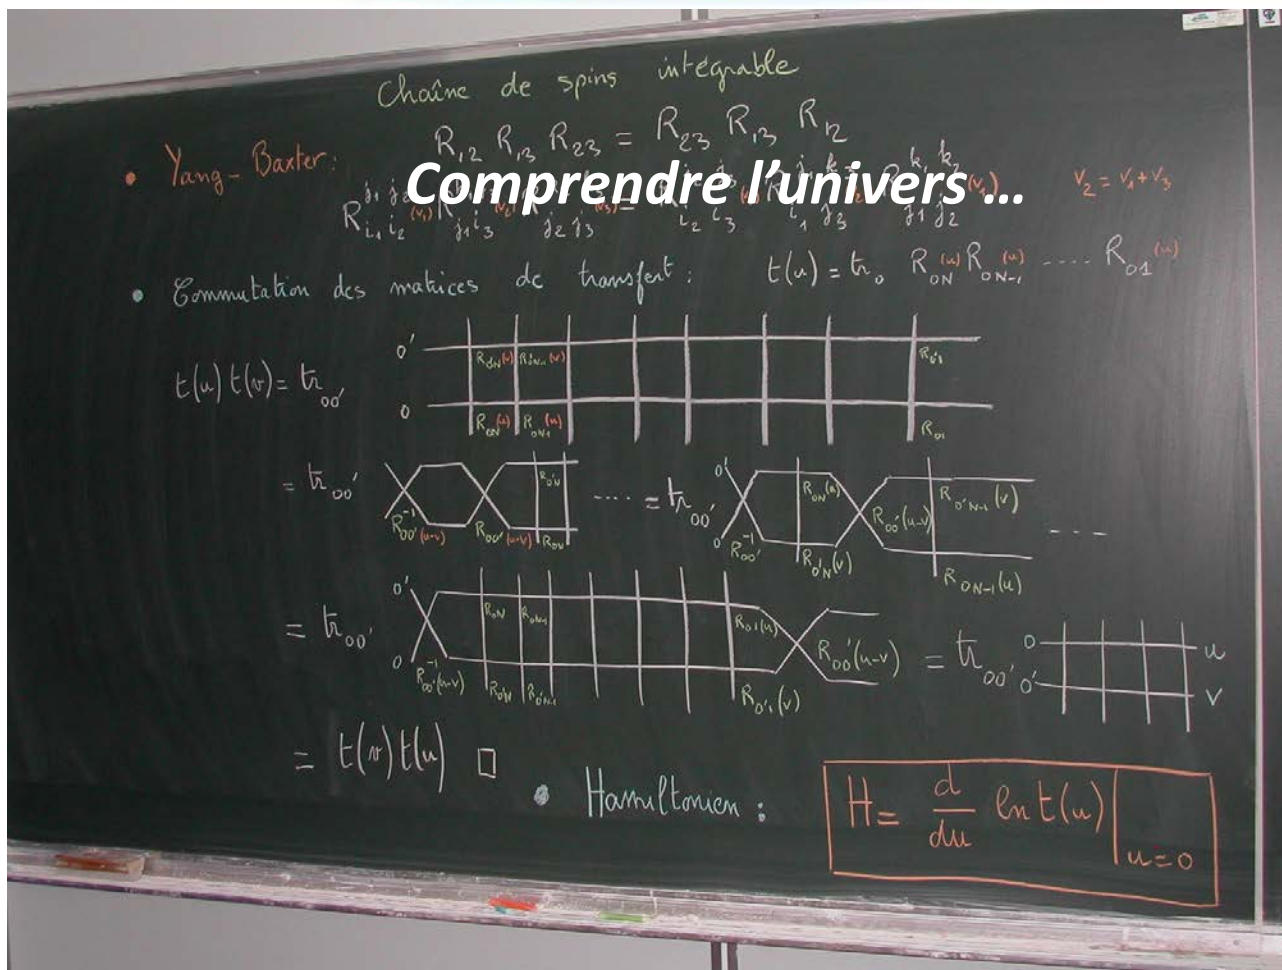 Chaîne de spins intégrable
• Yang-Baxter: R₁₂ R₁₃ R₂₃ = R₂₃ R₁₃ R₁₂
Comprendre l'univers ...
v₂ = v₁ + v₃
• Commutation des matrices de transfert : t(u) = tr₀ R₀N(u) R₀N-1(u) .... R₀₁(u)
t(u) t(v) = tr₀₀'
0' R₀'N(v) R₀'N-1(v) R₀'₁
0 R₀N(u) R₀N-1(u) R₀₁
= tr₀₀' R₀₀'⁻¹(u-v) R₀₀'(u-v) R₀'N R₀N .... = tr₀₀' 0' 0 R₀₀'⁻¹ R₀N(u) R₀'N(v) R₀₀'(u-v) R₀'N-1(v) R₀N-1(u) ----
= tr₀₀' 0' 0 R₀₀'⁻¹(u-v) R₀N R₀N-1 R₀'N R₀'N-1 R₀₁(u) R₀'₁(v) R₀₀'(u-v) = tr₀₀' 0 u 0' v
= t(v) t(u) □
• Hamiltonien : H = d/du ln t(u) |u=0